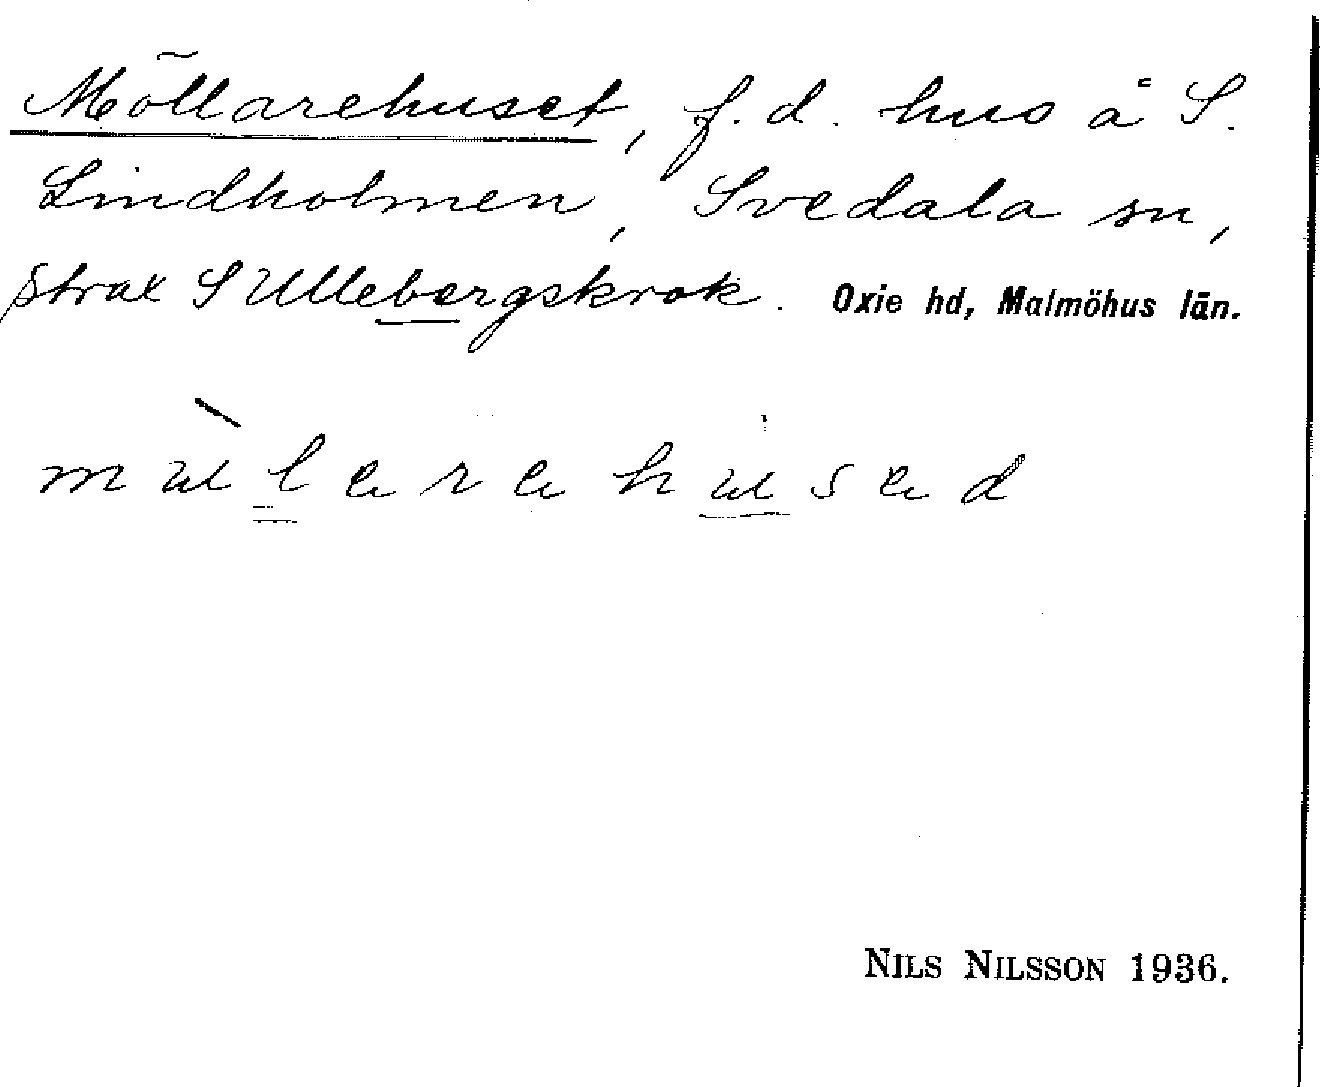 Möllarehuset, f.d. hus å S.
Lindholmen, Svedala sn,
strax S Ullebergskrok. Oxie hd, Malmöhus län.
NILS NILSSON 1936.